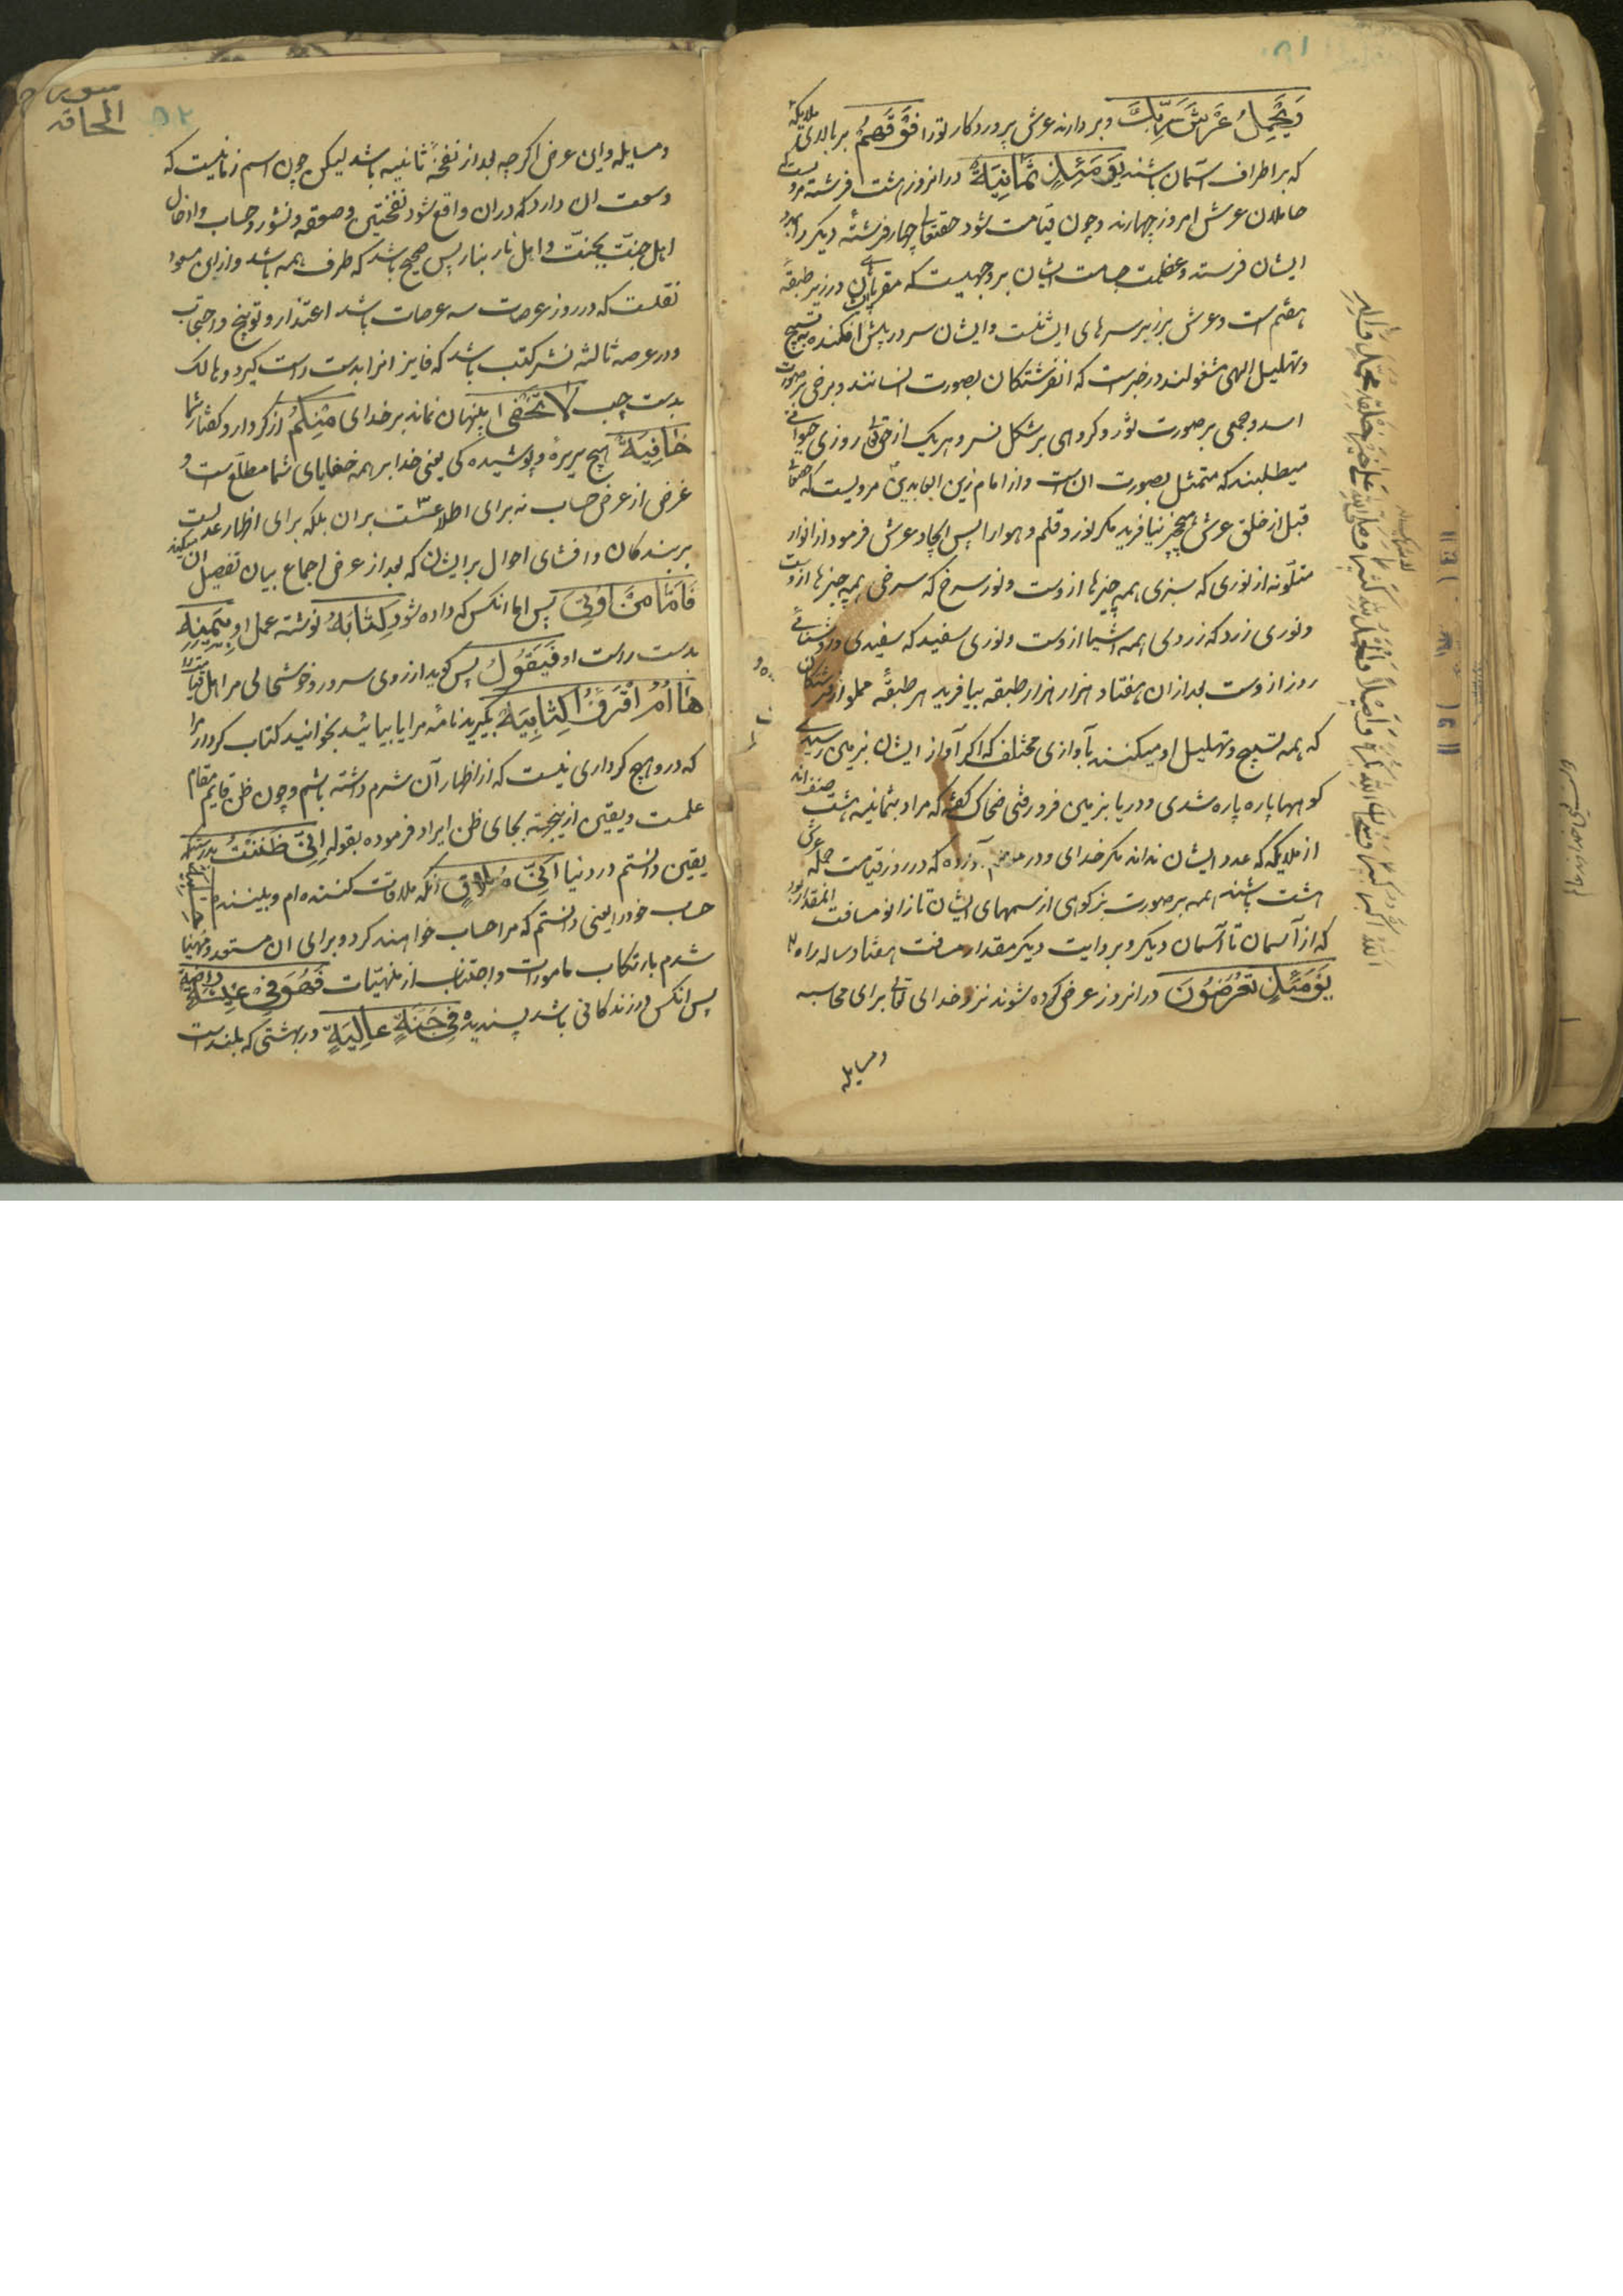 وَيَحْمِلُ عَرْشَ رَبِّكَ وبردارند عرش پروردكار تورا فَوْقَهُمْ بر بالاى ملايكه
كه بر اطراف آسمان باشند يَوْمَئِذٍ ثَمَانِيَةٌ در انروز هشت فرشته مرويست كه
حاملان عرش امروز چهارند و چون قيامت شود حقتعالى چهار فرشته ديكر را بمدد
ايشان فرستد و عظمت جسامت ايشان بر وجهيست كه پايهاى در زير طبقه
هفتم است و عرش بر زبر سرهاى ايشانست و ايشان سر در پيش افكنده بتسبيح
و تهليل الهى مشغولند در خبر است كه انفرشتكان بصورت انسانند و برخى بر صورت
اسد و جمعى بر صورت ثور و كروهى بر شكل نسر و هر يك از حقتعالى روزى حيوانى
ميطلبند كه متمثل بصورت ان است و از امام زين العابدين مرويست كه حقتعالى
قبل از خلق عرش هيچ چيز نيافريد مكر نور و قلم و هوا را پس ايجاد عرش فرمود از انوار
متلونه از نورى كه سبزى همه چيزها ازوست و نور سرخ كه سرخى همه چيزها ازوست
و نورى زرد كه زردى همه اشيا ازوست و نورى سفيد كه سفيدى و روشنائى
روز ازوست بعد ازان هفتاد هزار هزار طبقه بيافريد هر طبقه مملو از فرشتكان
كه همه تسبيح و تهليل او ميكنند بآوازى مختلف كه اكر آواز ايشان بزمين رسيدى
كوهها پاره پاره شدى و دريا بزمين فرو رفتى ضحاك كفته كه مراد بثمانيه هشت صنفند
از ملايكه كه عدد ايشان نداند مكر خداى و در آورده كه در روز قيامت حمله عرش
هشت باشند همه بر صورت بزكوهى از سمهاى ايشان تا زانو مسافت انمقدار بود
كه از آسمان تا آسمان ديكر و بروايت ديكر مقدار مسافت هفتاد ساله راه
يَوْمَئِذٍ تُعْرَضُونَ در انروز عرض كرده شوند نزد خداى تعالى براى محاسبه
ومسايله
سوره
الحاقه
ومسايله و اين عرض اكر چه بعد از نفخهٔ ثانيه باشد ليكن چون اسم زمانيست كه
وسعت ان دارد كه دران واقع شود نفختين و صعقه و نشور و حساب و ادخال
اهل جنت بجنت و اهل نار بنار پس صحيح باشد كه ظرف همه باشد و از ابن مسعود
نقلست كه در روز عرصات سه عرصات باشد اعتذار و توبيخ و احتجاب
و در عرصه ثالثه نشر كتب باشد كه فايز انرا بدست راست كيرد و هالك
بدست چپ لَا تَخْفَى پنهان نماند بر خداى مِنْكُمْ از كردار و كفتار شما
خَافِيَةٌ هيچ سريره و پوشيده كى يعنى خدا بر همه خفاياى شما مطلع است و
غرض از عرض حساب نه براى اطلاعست بران بلكه براى اظهار عدلست
بر بندكان و افشاى احوال بر ايشان كه بعد از عرض اجماع بيان تفصيل ان ميكند
فَأَمَّا مَنْ أُوتِيَ پس اما انكس كه داده شود كِتَابَهُ نوشته عمل او بِيَمِينِهِ
بدست راست او فَيَقُولُ پس كويد از روى سرور و خوشحالى مر اهل قيامت را
هَاؤُمُ اقْرَءُوا كِتَابِيَهْ بكيريد نامه مرا يا بيائيد بخوانيد كتاب كردار مرا
كه درو هيچ كردارى نيست كه از اظهار آن شرم داشته باشم و چون ظن قايم مقام
علمست و يقين ازينجهته بجاى ظن ايراد فرموده بقوله إِنِّي ظَنَنْتُ بدرستيكه
يقين دانستم در دنيا أَنِّي مُلَاقٍ انكه ملاقات كننده ام و بيننده حِسَابِيَهْ
حساب خود را يعنى دانستم كه مرا حساب خواهند كرد و براى ان مستعد و مهيا
شدم بارتكاب مامورات و اجتناب از منهيات فَهُوَ فِي عِيشَةٍ رَاضِيَةٍ
پس انكس در زندكانى باشد پسنديده فِي جَنَّةٍ عَالِيَةٍ در بهشتى كه بلند است